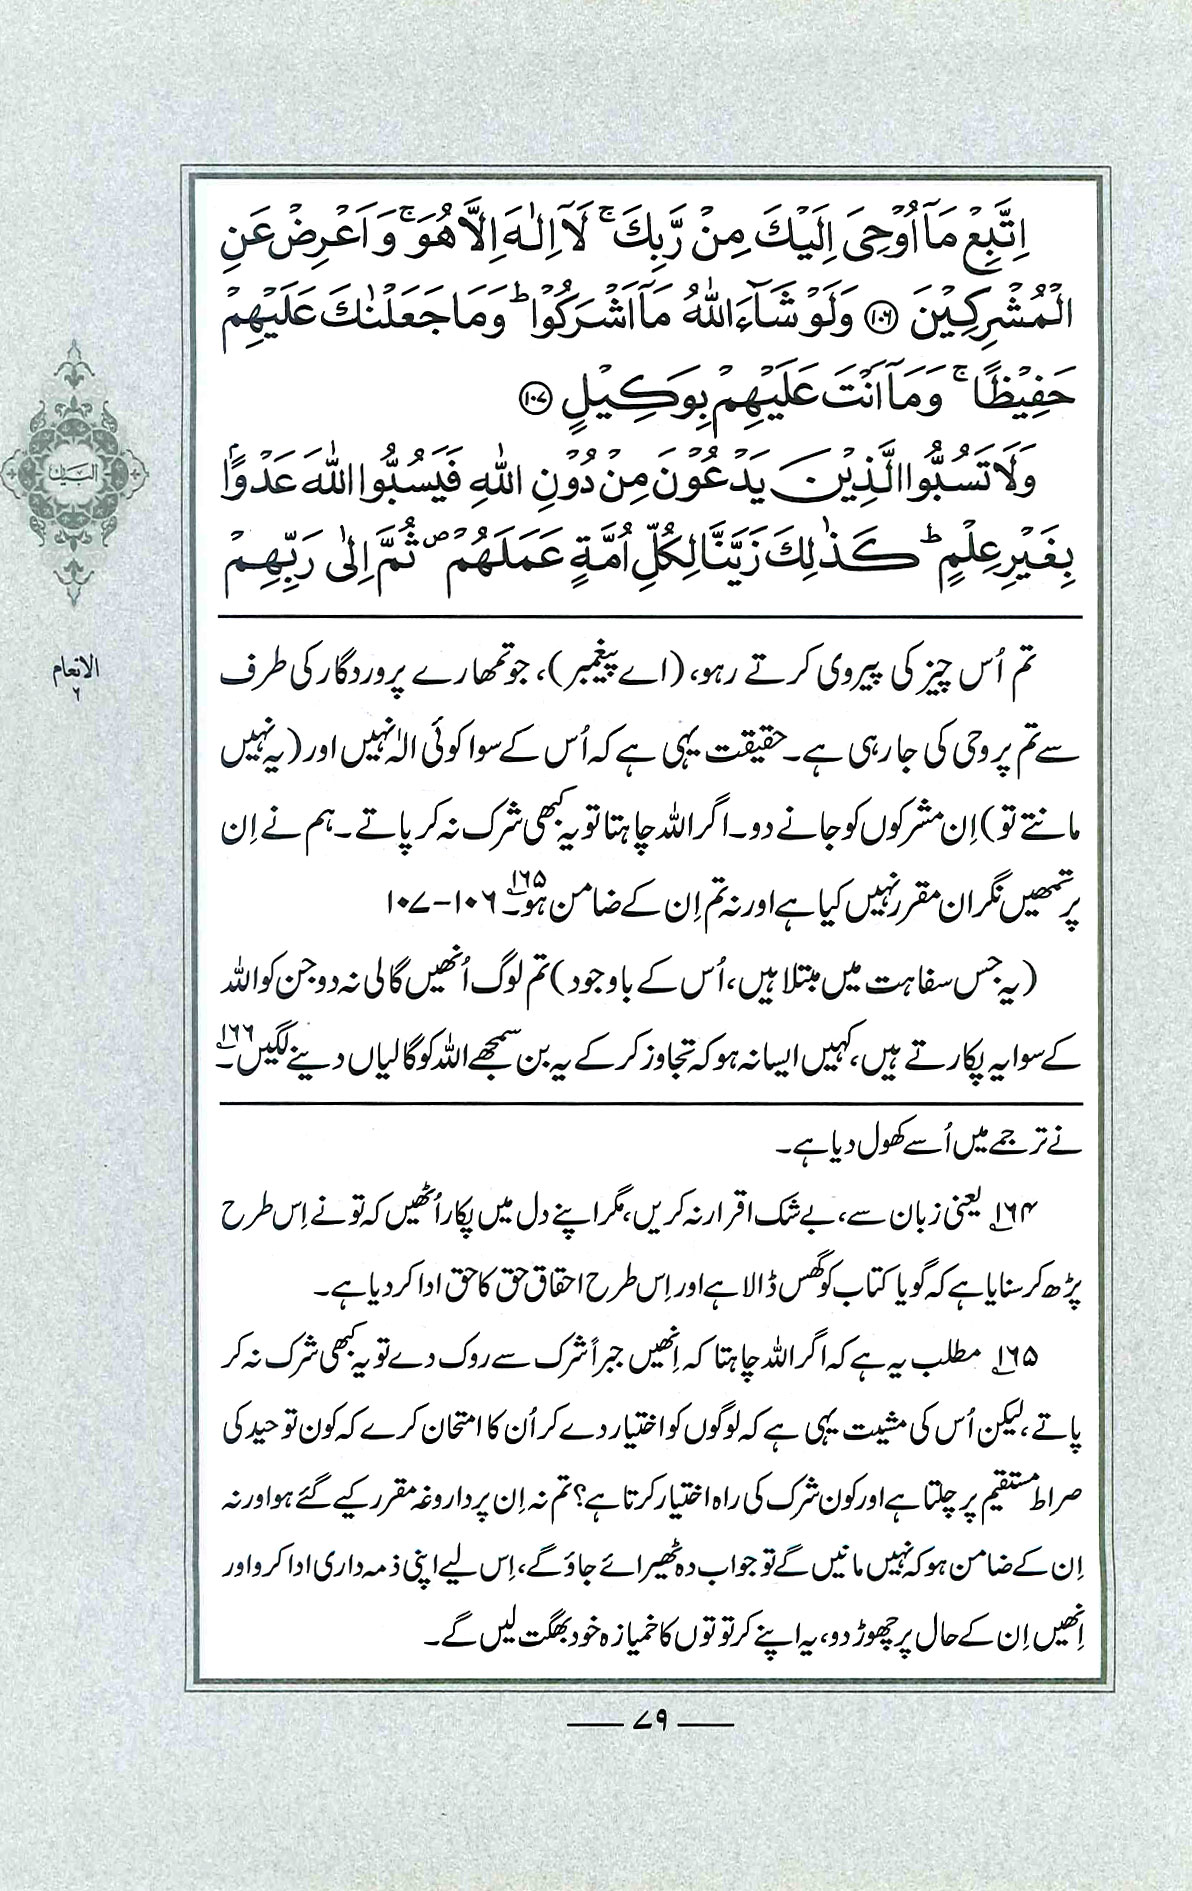 اِتَّبِعْ مَآ اُوْحِیَ اِلَیْكَ مِنْ رَّبِّكَ ۚ لَآ اِلٰهَ اِلَّا هُوَ ۚ وَاَعْرِضْ عَنِ
الْمُشْرِكِیْنَ ﴿۱۰۶﴾ وَلَوْ شَآءَ اللّٰهُ مَآ اَشْرَكُوْا ؕ وَمَا جَعَلْنٰكَ عَلَیْهِمْ
حَفِیْظًا ۚ وَمَآ اَنْتَ عَلَیْهِمْ بِوَكِیْلٍ ﴿۱۰۷﴾
وَلَا تَسُبُّوا الَّذِیْنَ یَدْعُوْنَ مِنْ دُوْنِ اللّٰهِ فَیَسُبُّوا اللّٰهَ عَدْوًاۢ
بِغَیْرِ عِلْمٍ ؕ كَذٰلِكَ زَیَّنَّا لِكُلِّ اُمَّةٍ عَمَلَهُمْ ۪ ثُمَّ اِلٰی رَبِّهِمْ
تم اُس چیز کی پیروی کرتے رہو، (اے پیغمبر)، جو تمھارے پروردگار کی طرف
سے تم پر وحی کی جا رہی ہے۔ حقیقت یہی ہے کہ اُس کے سوا کوئی الٰہ نہیں اور (یہ نہیں
مانتے تو) اِن مشرکوں کو جانے دو۔ اگر اللہ چاہتا تو یہ کبھی شرک نہ کر پاتے۔ ہم نے اِن
پر تمھیں نگران مقرر نہیں کیا ہے اور نہ تم اِن کے ضامن ہو۔۱۶۵ ۱۰۶-۱۰۷
(یہ جس سفاہت میں مبتلا ہیں، اُس کے باوجود) تم لوگ اُنھیں گالی نہ دو جن کو اللہ
کے سوا یہ پکارتے ہیں، کہیں ایسا نہ ہو کہ تجاوز کر کے یہ بن سمجھے اللہ کو گالیاں دینے لگیں۔۱۶۶
نے ترجمے میں اُسے کھول دیا ہے۔
۱۶۴ یعنی زبان سے، بے شک اقرار نہ کریں، مگر اپنے دل میں پکار اُٹھیں کہ تو نے اِس طرح
پڑھ کر سنایا ہے کہ گویا کتاب کو گھس ڈالا ہے اور اِس طرح احقاق حق کا حق ادا کر دیا ہے۔
۱۶۵ مطلب یہ ہے کہ اگر اللہ چاہتا کہ اِنھیں جبراً شرک سے روک دے تو یہ کبھی شرک نہ کر
پاتے، لیکن اُس کی مشیت یہی ہے کہ لوگوں کو اختیار دے کر اُن کا امتحان کرے کہ کون توحید کی
صراط مستقیم پر چلتا ہے اور کون شرک کی راہ اختیار کرتا ہے؟ تم نہ اِن پر داروغہ مقرر کیے گئے ہو اور نہ
اِن کے ضامن ہو کہ نہیں مانیں گے تو جواب دہ ٹھیرائے جاؤ گے، اِس لیے اپنی ذمہ داری ادا کرو اور
اِنھیں اِن کے حال پر چھوڑ دو، یہ اپنے کرتوتوں کا خمیازہ خود بھگت لیں گے۔
البیان
الانعام
۶
۷۹